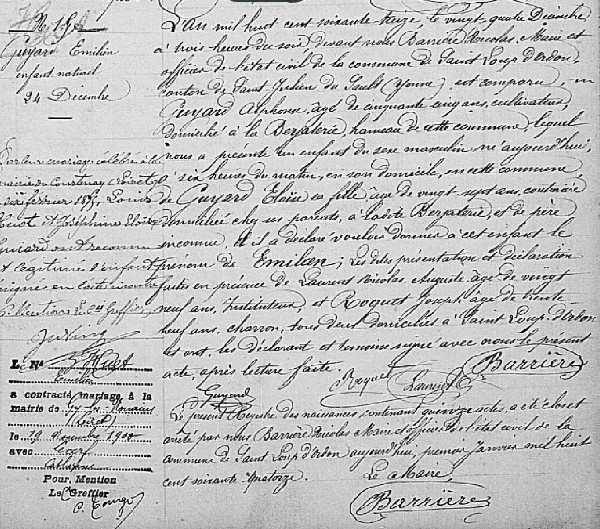 N° 15
Guyard Emilien
enfant naturel
24 Décembre
L'An mil huit cent soixante treize le vingt quatre Décembre
à trois heures du soir, devant nous Barrière Nicolas, Maire et
officier de l'état civil de la commune de Saint Loup d'Ordon,
canton de Saint Julien du Sault (Yonne), est comparu, en
Guyard Alphonse, âgé de cinquante cinq ans, cultivateur,
domicilié à la Bezaterie, hameau de cette commune, lequel
nous a présenté un enfant du sexe masculin né aujourd'hui,
à six heures du matin, en son domicile, en cette commune,
de Guyard Eloïse sa fille, âgée de vingt sept ans, couturière
domiciliée chez ses parents, à ladite Bezaterie, et de père
inconnu, et il a déclaré vouloir donner à cet enfant le
prénom de Emilien; Lesdites présentation et déclaration
faites en présence de Laurent Nicolas Auguste, âgé de vingt
neuf ans, Instituteur, et Roquet Joseph âgé de trente
neuf ans, charron, tous deux domiciliés à Saint Loup d'Ordon
et ont, les déclarant et témoins signé avec nous le présent
acte, après lecture faite.
Barrière
Guyard Roquet Laurent
Le présent Registre des naissances, contenant quinze actes, a été clos et
arrêté par nous Barrière Nicolas Maire et officier de l'état civil de la
commune de Saint Loup d'Ordon aujourd'hui, premier Janvier mil huit
cent soixante quatorze.
Le Maire
Barrière
Par leur mariage célébré à la
mairie de Courtenay (Loiret)
février Louis
et Joséphine Eloïse
Guyard ont reconnu
et légitimé l'enfant
Mention Greffier
L. N° Huot
Emilien
a contracté mariage à la
mairie de
(Loiret)
le 19 1900
avec
Pour, Mention
Le Greffier